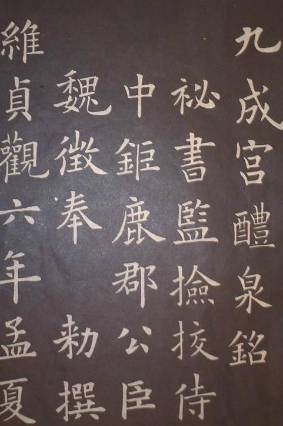 九成宮醴泉銘
秘書監撿挍侍
中鉅鹿郡公臣
魏徵奉 勑撰
維貞觀六年孟夏